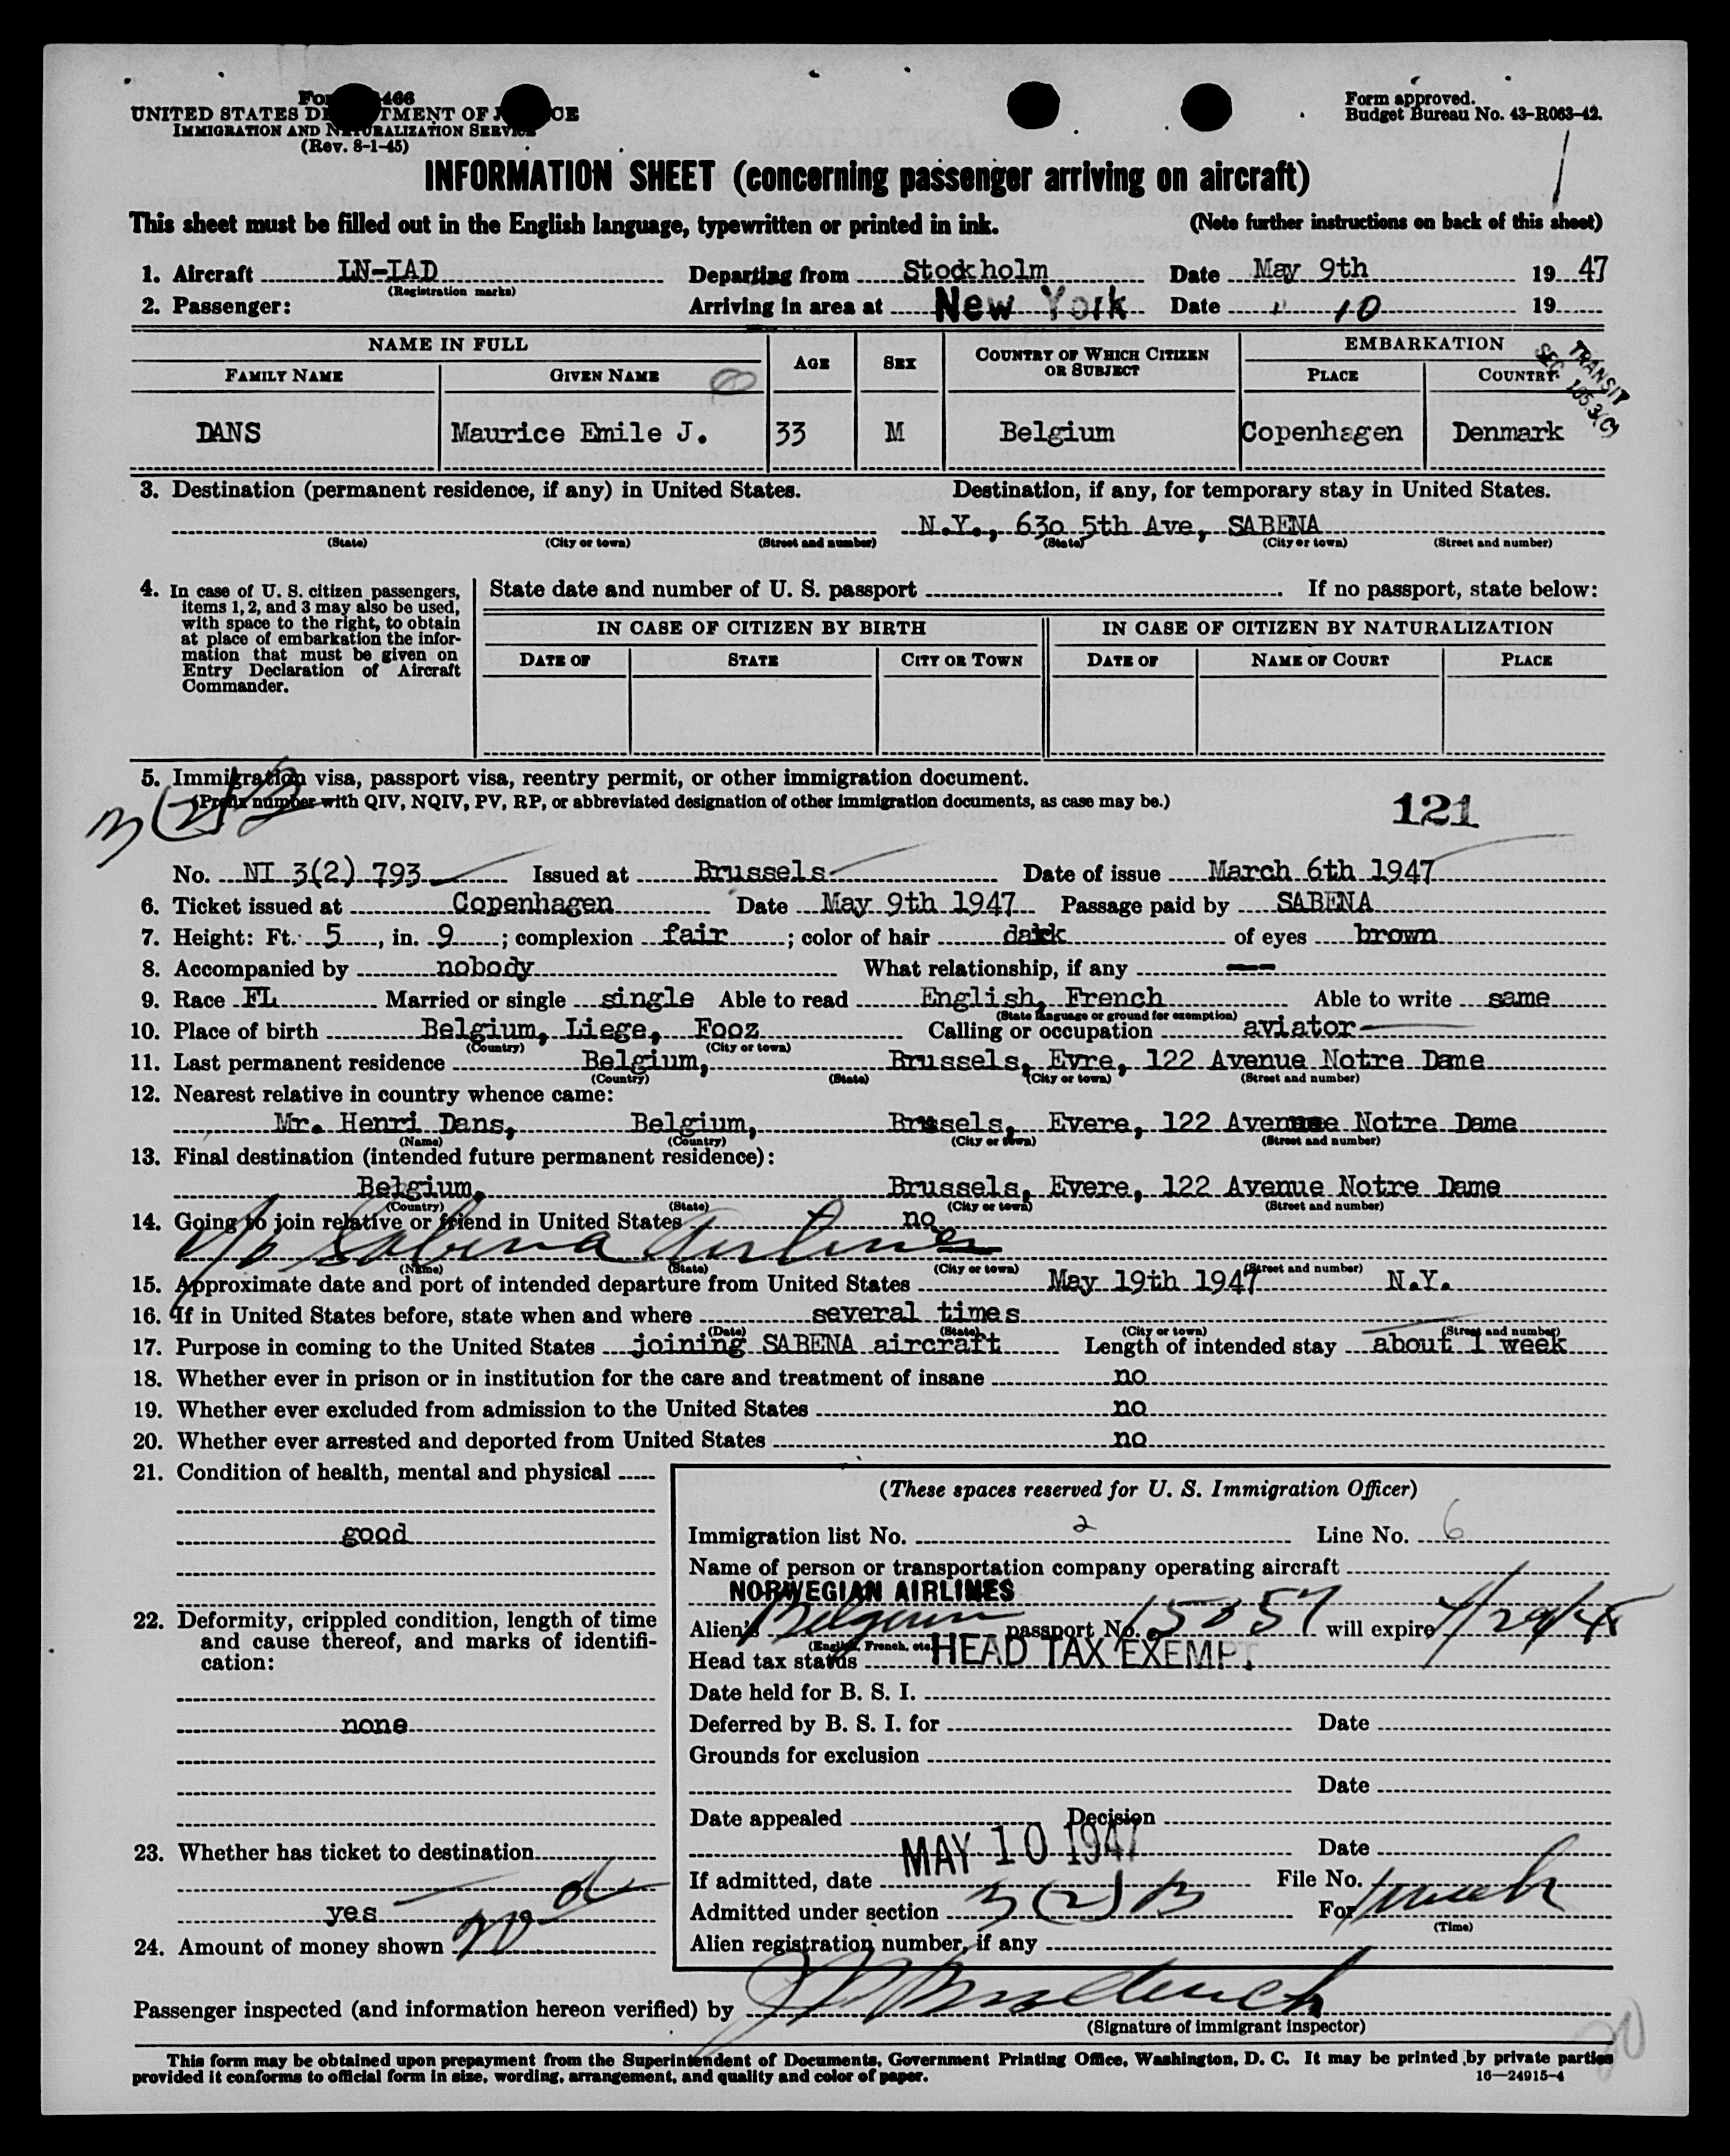 Fo 466
UNITED STATES DE TMENT OF J CE
IMMIGRATION AND NATURALIZATION SERVICE
(Rev. 8-1-45)
Form approved.
Budget Bureau No. 43-R063-42.
INFORMATION SHEET (concerning passenger arriving on aircraft)
This sheet must be filled out in the English language, typewritten or printed in ink. (Note further instructions on back of this sheet)
1. Aircraft LN-IAD Departing from Stockholm Date May 9th 19 47
(Registration marks)
2. Passenger: Arriving in area at New York Date " 10 19
NAME IN FULL AGE SEX COUNTRY OF WHICH CITIZEN OR SUBJECT EMBARKATION
FAMILY NAME GIVEN NAME PLACE COUNTRY
TRANSIT
SEC. 165.3(C)
DANS Maurice Emile J. 33 M Belgium Copenhagen Denmark
3. Destination (permanent residence, if any) in United States. Destination, if any, for temporary stay in United States.
N.Y., 630 5th Ave, SABENA
(State) (City or town) (Street and number) (State) (City or town) (Street and number)
4. In case of U. S. citizen passengers, items 1, 2, and 3 may also be used, with space to the right, to obtain at place of embarkation the information that must be given on Entry Declaration of Aircraft Commander.
State date and number of U. S. passport If no passport, state below:
IN CASE OF CITIZEN BY BIRTH IN CASE OF CITIZEN BY NATURALIZATION
DATE OF STATE CITY OR TOWN DATE OF NAME OF COURT PLACE
5. Immigration visa, passport visa, reentry permit, or other immigration document.
(Prefix number with QIV, NQIV, PV, RP, or abbreviated designation of other immigration documents, as case may be.)
3(2)B
121
No. NI 3(2) 793 Issued at Brussels Date of issue March 6th 1947
6. Ticket issued at Copenhagen Date May 9th 1947 Passage paid by SABENA
7. Height: Ft. 5, in. 9; complexion fair; color of hair dark of eyes brown
8. Accompanied by nobody What relationship, if any ---
9. Race FL Married or single single Able to read English, French Able to write same
(State language or ground for exemption)
10. Place of birth Belgium, Liege, Fooz Calling or occupation aviator
(Country) (City or town)
11. Last permanent residence Belgium, Brussels, Evre, 122 Avenue Notre Dame
(Country) (State) (City or town) (Street and number)
12. Nearest relative in country whence came:
Mr. Henri Dans, Belgium, Brussels, Evere, 122 Avenue Notre Dame
(Name) (Country) (City or town) (Street and number)
13. Final destination (intended future permanent residence):
Belgium, Brussels, Evere, 122 Avenue Notre Dame
(Country) (State) (City or town) (Street and number)
14. Going to join relative or friend in United States no
c/o Sabena Airlines
(Name) (State) (City or town) (Street and number)
15. Approximate date and port of intended departure from United States May 19th 1947 N.Y.
16. If in United States before, state when and where several times
(Date) (State) (City or town) (Street and number)
17. Purpose in coming to the United States joining SABENA aircraft Length of intended stay about 1 week
18. Whether ever in prison or in institution for the care and treatment of insane no
19. Whether ever excluded from admission to the United States no
20. Whether ever arrested and deported from United States no
21. Condition of health, mental and physical
good
22. Deformity, crippled condition, length of time and cause thereof, and marks of identification:
none
23. Whether has ticket to destination
yes
24. Amount of money shown
(These spaces reserved for U. S. Immigration Officer)
Immigration list No. 2 Line No. 6
Name of person or transportation company operating aircraft
NORWEGIAN AIRLINES
Alien's Belgium passport No. 15057 will expire
(English, French, etc.)
Head tax status HEAD TAX EXEMPT
Date held for B. S. I.
Deferred by B. S. I. for Date
Grounds for exclusion
Date
Date appealed Decision
Date
If admitted, date MAY 10 1947 File No.
Admitted under section 3(2)B For
(Time)
Alien registration number, if any
Passenger inspected (and information hereon verified) by
(Signature of immigrant inspector)
This form may be obtained upon prepayment from the Superintendent of Documents, Government Printing Office, Washington, D. C. It may be printed by private parties
provided it conforms to official form in size, wording, arrangement, and quality and color of paper.
16—24915-4